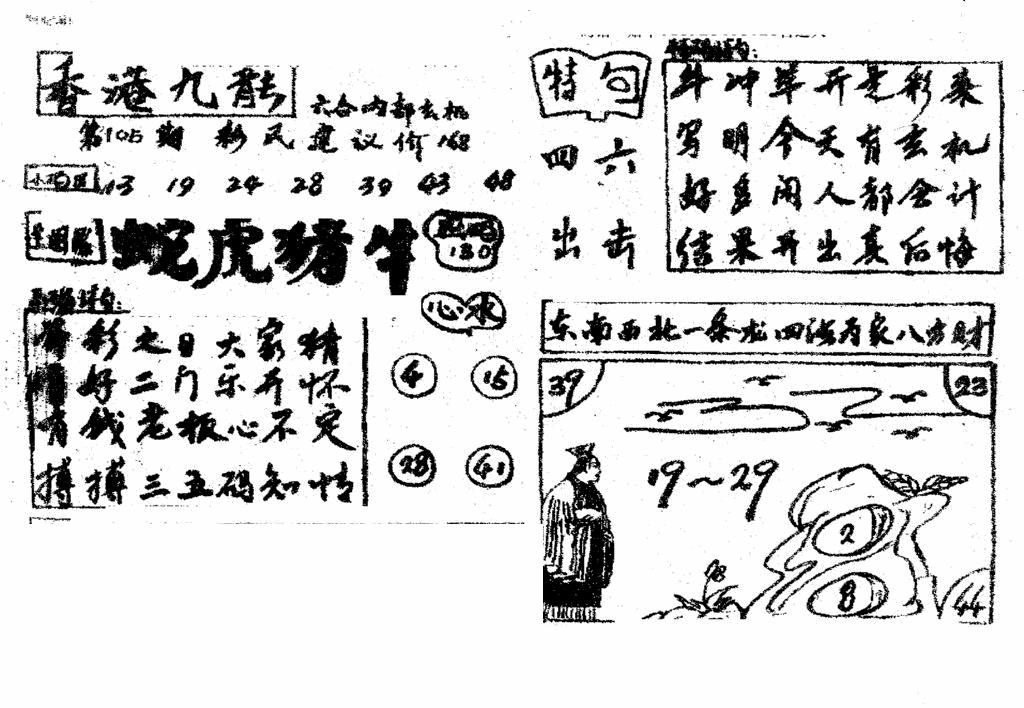 香港九龍
六合内部玄机
第105期 彩民建议价168
13 19 24 28 39 43 48
生肖
蛇虎猪牛
130
心水
彩之日大家猜
好二门乐开怀
有钱老板心不定
搏搏三五码知情
4 15
28 41
特句
四六
出击
冲单开是彩来
写明今天有玄机
好多闲人都会计
结果开出真后悔
东南西北一条龙四海为家八方财
39 23
19~29
2
8
44